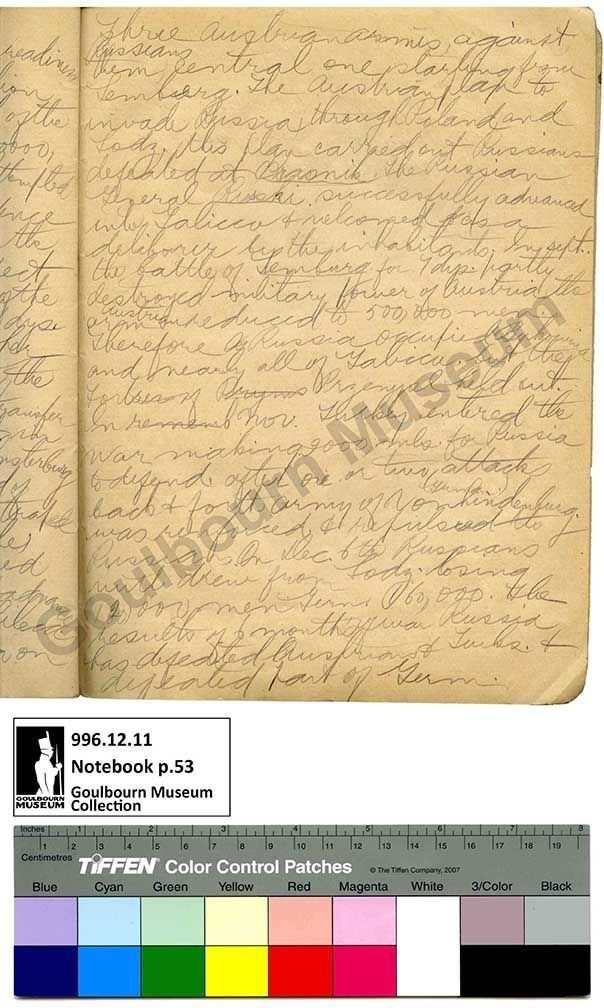 Three Austrian armies, against
Russians
them central one starting from
Lemburg. The Austrian plan to
invade Russia, through Poland and
Lodz, this plan carried out Russians
defeated at Krasnik. The Russian
General Ruski, successfully advanced
into Galicca & welcomed as a
by the inhabitants. In Sept.
the battle of Lemburg for 7 dys. partly
destroyed military power of Austria the
Austrian
army reduced to 500,000 men
Therefore Russia occupied
and nearly all of Galicca
of Przemysl held out.
In Nov. Turkey entered the
war making 2000 mls. for Russia
to defend. after one or two attacks
back & forth army of Von Hindenburg
was reinforced & repulsed by
Russians. On Dec. 6th Russians
withdrew from Lodz. losing
men Germ. 160,000. The
results of 5 months war Russia
has defeated Austrians & Turks. &
defeated part of Germ.
readiness
of the
attempted
the
the
transfer
of
ed
on
Goulbourn Museum
996.12.11
Notebook p.53
Goulbourn Museum
Collection
GOULBOURN
MUSEUM
Inches 1 2 3 4 5 6 7 8
Centimetres 1 2 3 4 5 6 7 8 9 10 11 12 13 14 15 16 17 18 19
TIFFEN Color Control Patches © The Tiffen Company, 2007
Blue Cyan Green Yellow Red Magenta White 3/Color Black